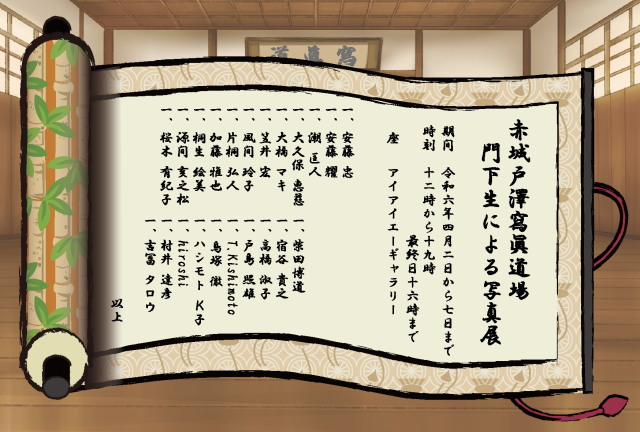 寫眞道
赤城戸澤寫眞道場
門下生による写真展
期間　令和六年四月二日から七日まで
時刻　十二時から十九時
最終日十六時まで
座　アイアイエーギャラリー
一、安藤 忠
一、安藤 耀
一、潮 匡人
一、大久保 恵慈
一、大橋 マキ
一、笠井 宏
一、風間 玲子
一、片桐 弘人
一、加藤 雅也
一、桐生 絵美
一、源間 亥之松
一、桜木 有紀子
一、柴田 博道
一、宿谷 貴之
一、高橋 淑子
一、戸島 照雄
一、T.Kishimoto
一、鳥塚 徹
一、ハシモト K子
一、hiroshi
一、村井 達彦
一、吉冨 タロウ
以上